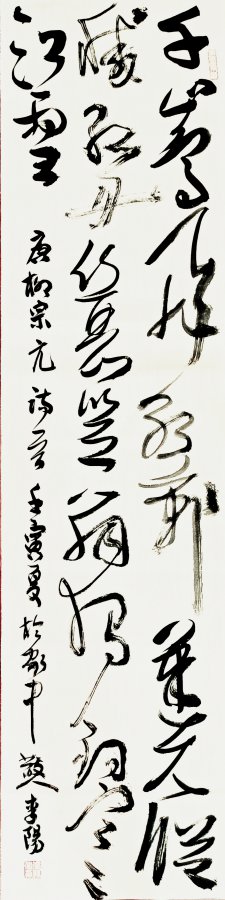 千山鳥飛絕萬徑人蹤
滅孤舟蓑笠翁獨釣寒
江雪
唐柳宗元詩 壬寅夏於 中 李陽